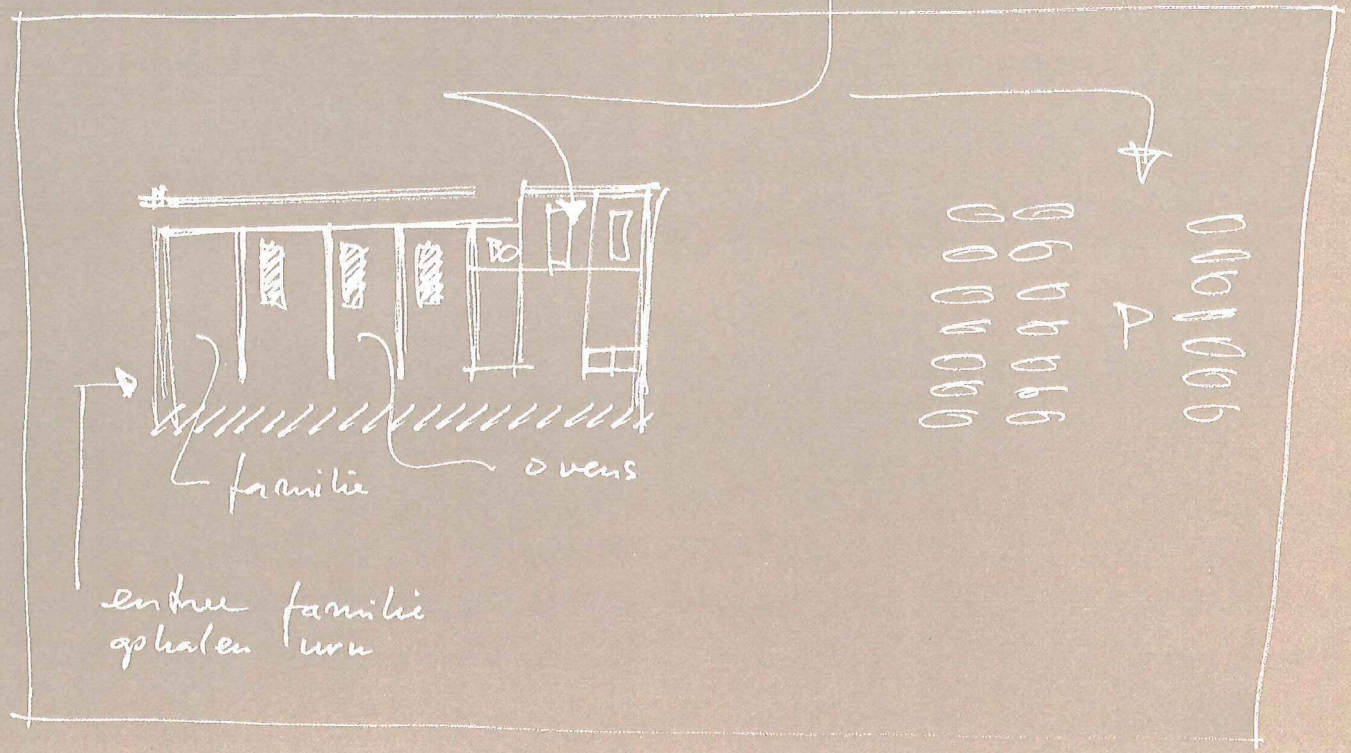 P
familie
ovens
entree familie
ophalen urn